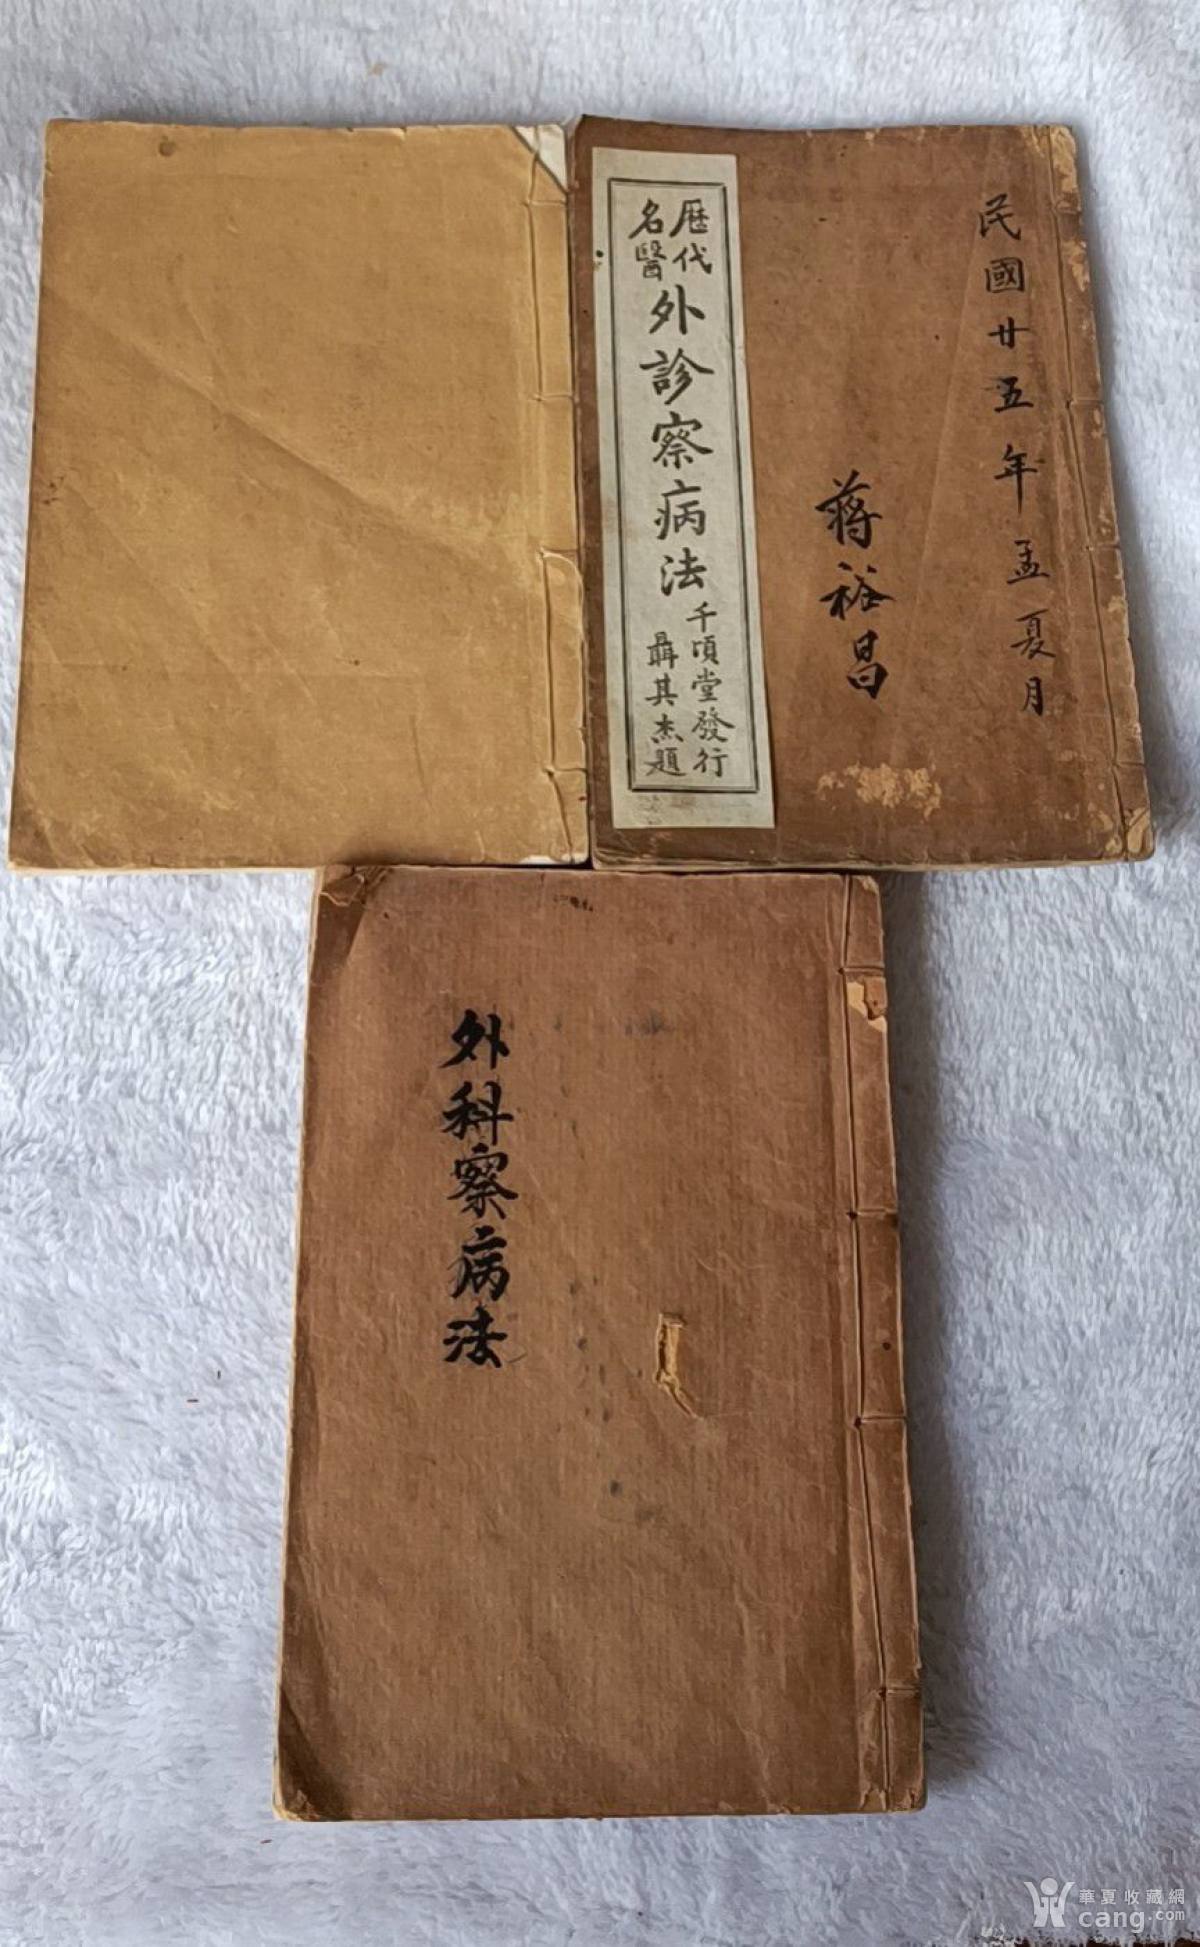 民國廿五年孟夏月
蔣裕昌
歷代
名醫
外診察病法
千頃堂發行
聶其杰題
外科察病法
華夏收藏網
cang.com